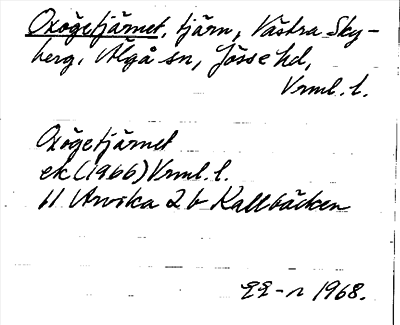 Oxögetjärnet, tjärn, Västra Sky-
berg, Älgå sn, Jösse hd,
Vrml. l.
Oxögetjärnet
ek (1966) Vrml. l.
11 Arvika 2 b Kallbäcken
1968.